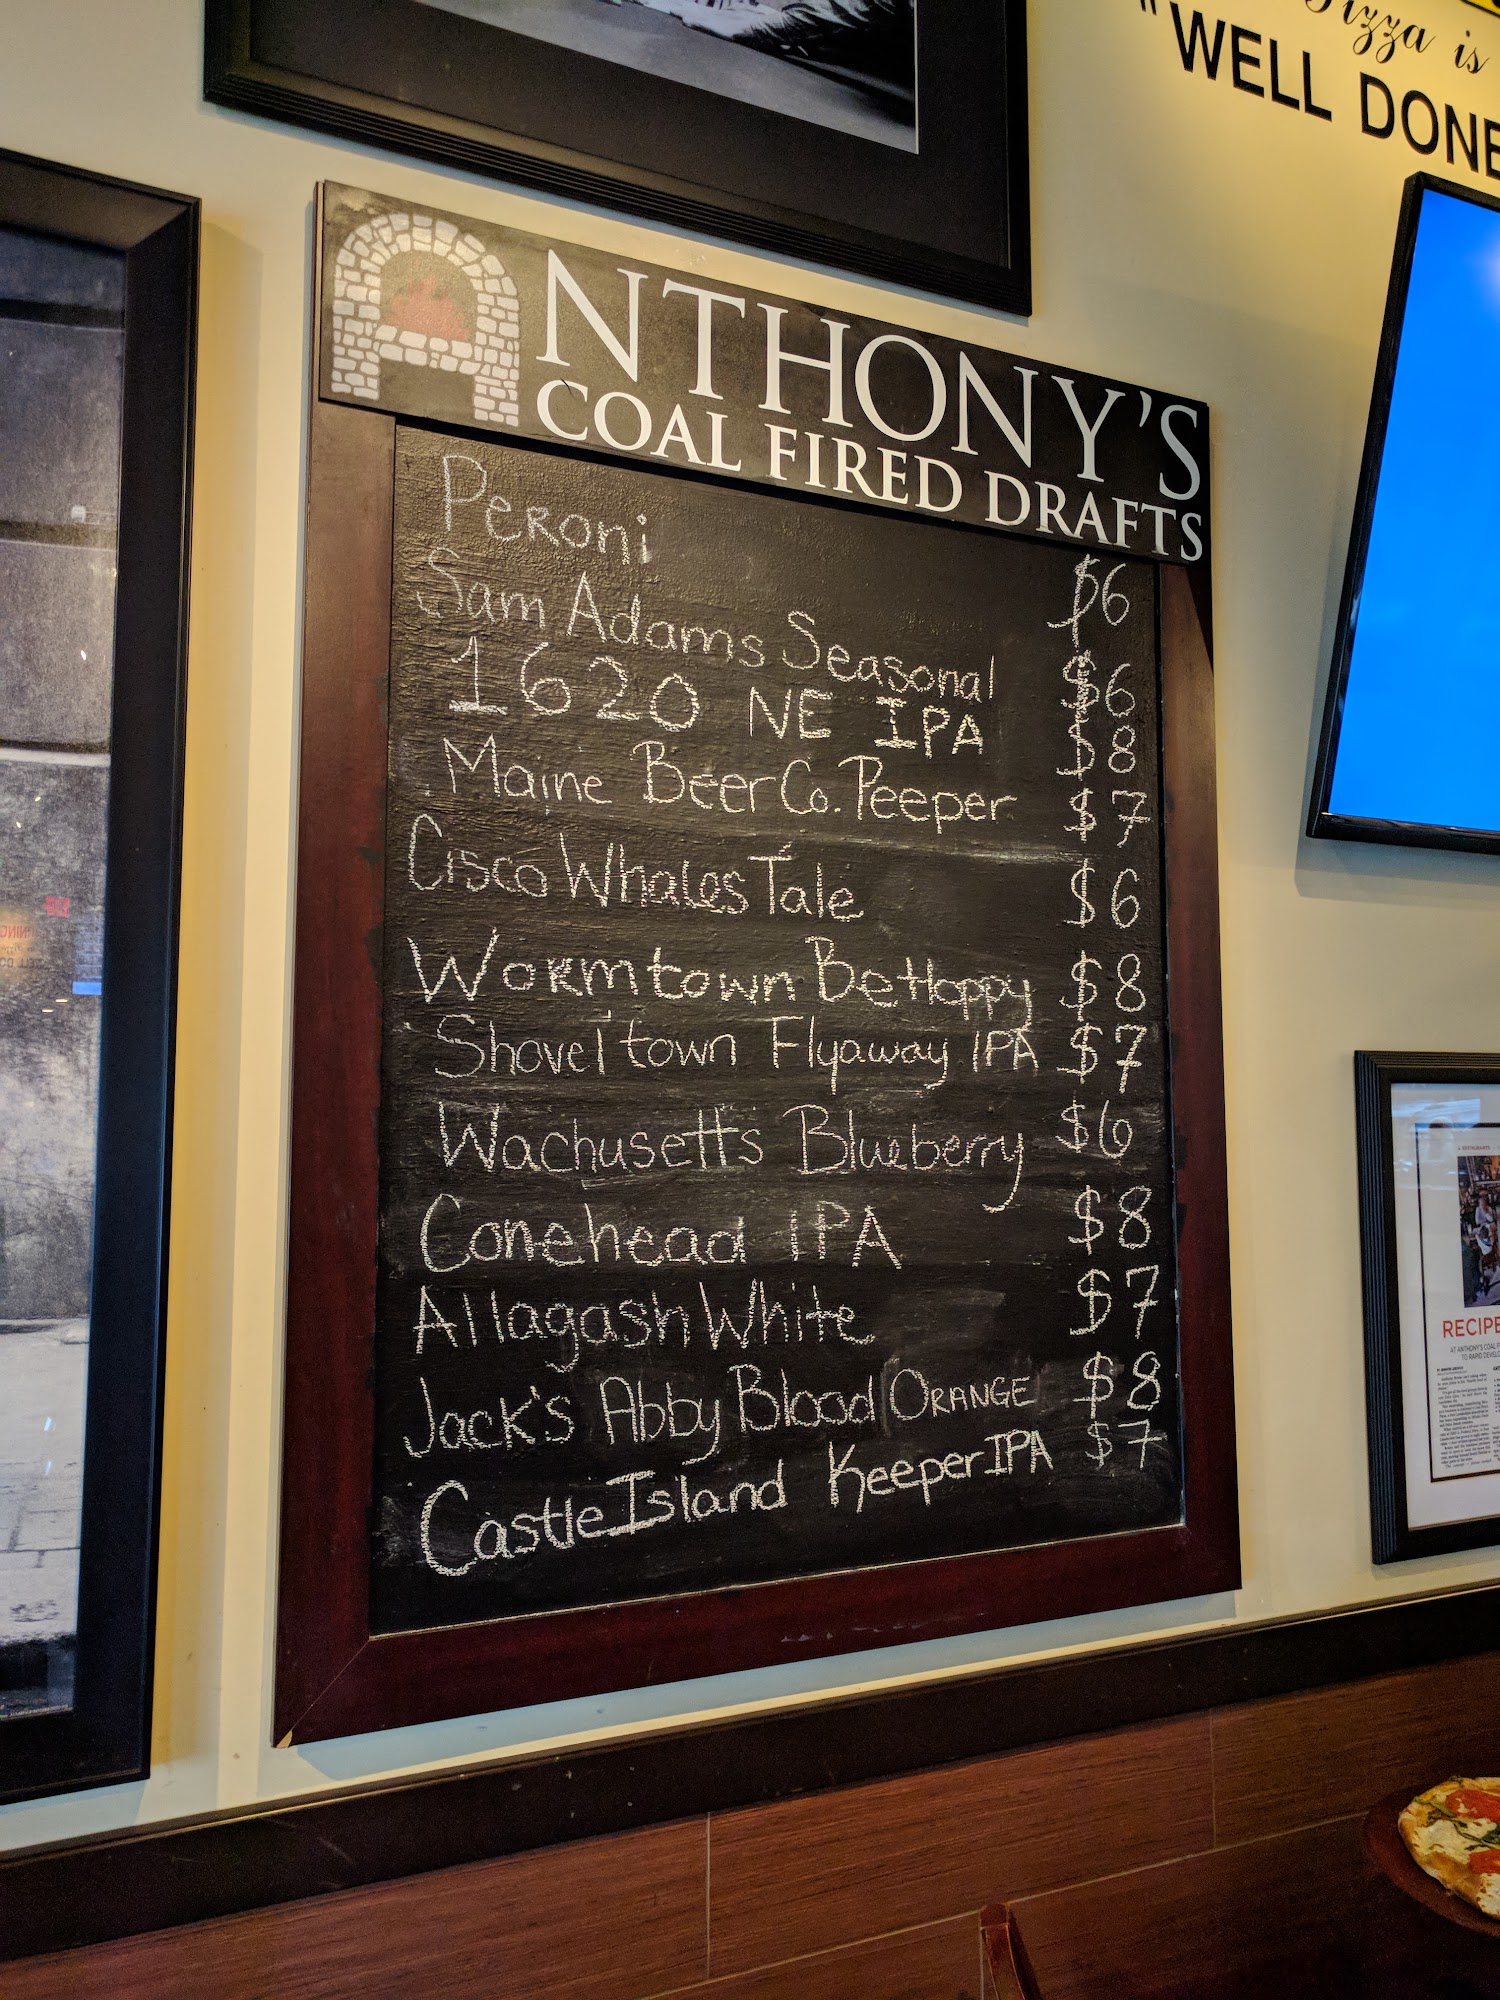 Pizza is
"WELL DONE
ANTHONY'S
COAL FIRED DRAFTS
Peroni $6
Sam Adams Seasonal $6
1620 NE IPA $8
Maine Beer Co. Peeper $7
Cisco Whales Tale $6
Wormtown Be Hoppy $8
Shovel town Flyaway IPA $7
Wachusetts Blueberry $6
Conehead IPA $8
Allagash White $7
Jack's Abby Blood ORANGE $8
Castle Island Keeper IPA $7
RECIPE
AT ANTHONY'S COAL F
TO RAPID DEVEL